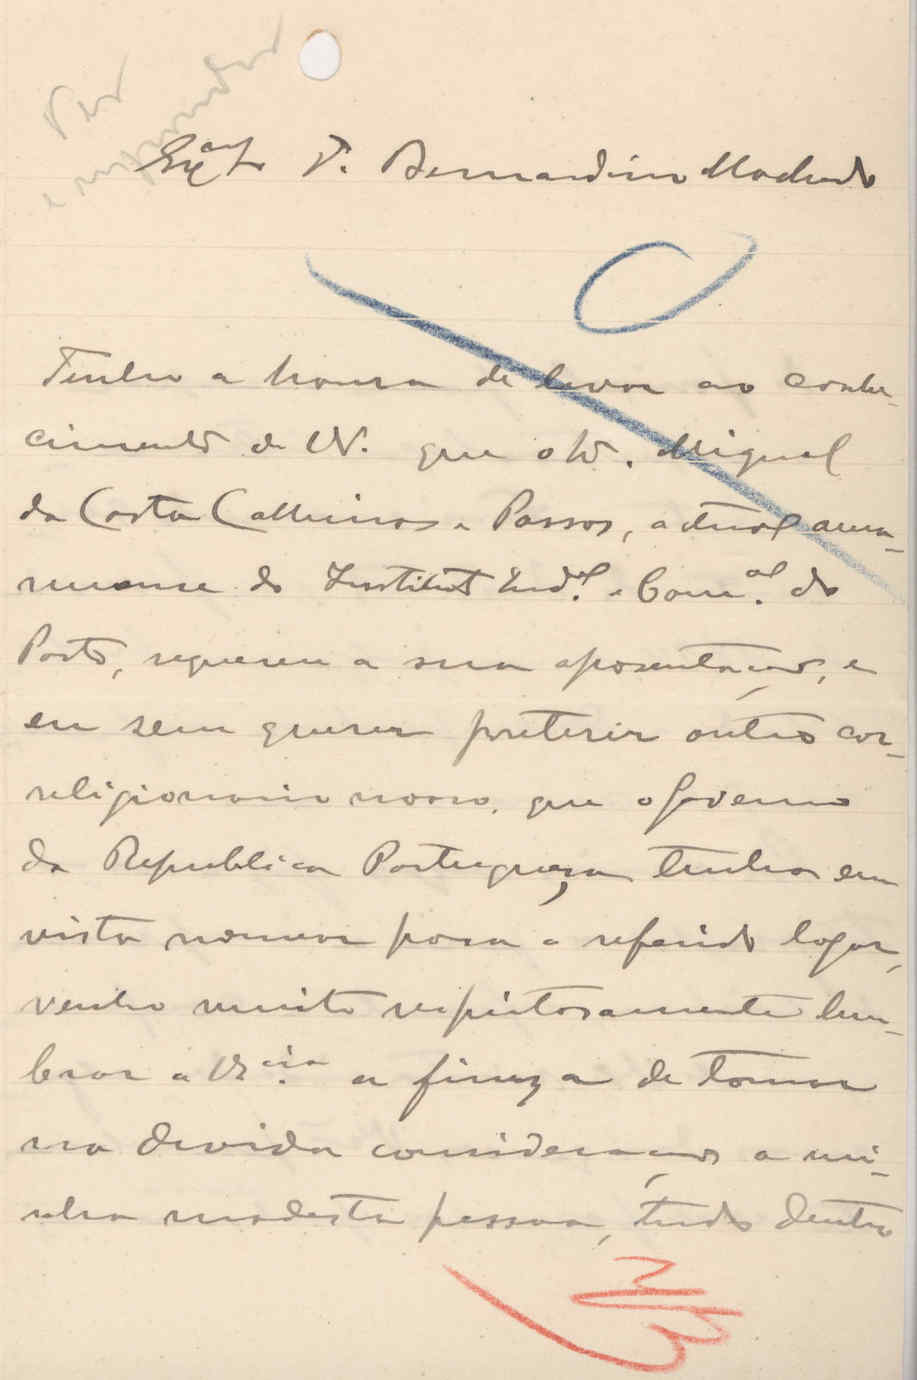 Ver
e responder
Exmo Dr. Bernardino Machado
Tenho a honra de levar ao conhe-
cimento de V. que o Sr. Miguel
da Costa Calheiros e Passos, actual ama-
nuense do Instituto Indal. e Comal. do
Porto, requereu a sua aposentação, e
eu sem querer preterir outro cor-
religionario nosso, que o Governo
da Republica Portugueza tenha em
vista nomear para o referido logar,
venho muito respeitosamente lem-
brar a V. Excia. a fineza de tomar
na devida consideração a mi-
nha modesta pessoa, tudo dentro